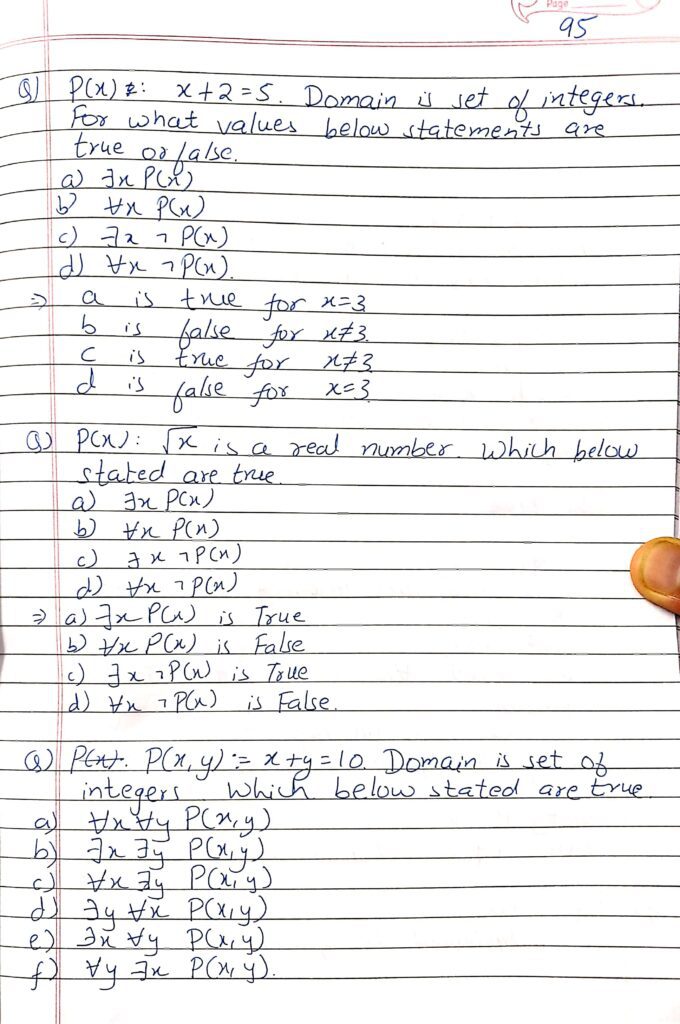 Page
95
Q) P(x) : x+2=5. Domain is set of integers.
For what values below statements are
true or false.
a) ∃x P(x)
b) ∀x P(x)
c) ∃x ¬P(x)
d) ∀x ¬P(x).
⇒ a is true for x=3
b is false for x≠3.
c is true for x≠3
d is false for x=3
Q) P(x): √x is a real number. Which below
stated are true.
a) ∃x P(x)
b) ∀x P(x)
c) ∃x ¬P(x)
d) ∀x ¬P(x)
⇒ a) ∃x P(x) is True
b) ∀x P(x) is False
c) ∃x ¬P(x) is True
d) ∀x ¬P(x) is False.
Q) P(x). P(x,y) := x+y=10. Domain is set of
integers which below stated are true
a) ∀x ∀y P(x,y)
b) ∃x ∃y P(x,y)
c) ∀x ∃y P(x,y)
d) ∃y ∀x P(x,y)
e) ∃x ∀y P(x,y)
f) ∀y ∃x P(x,y).